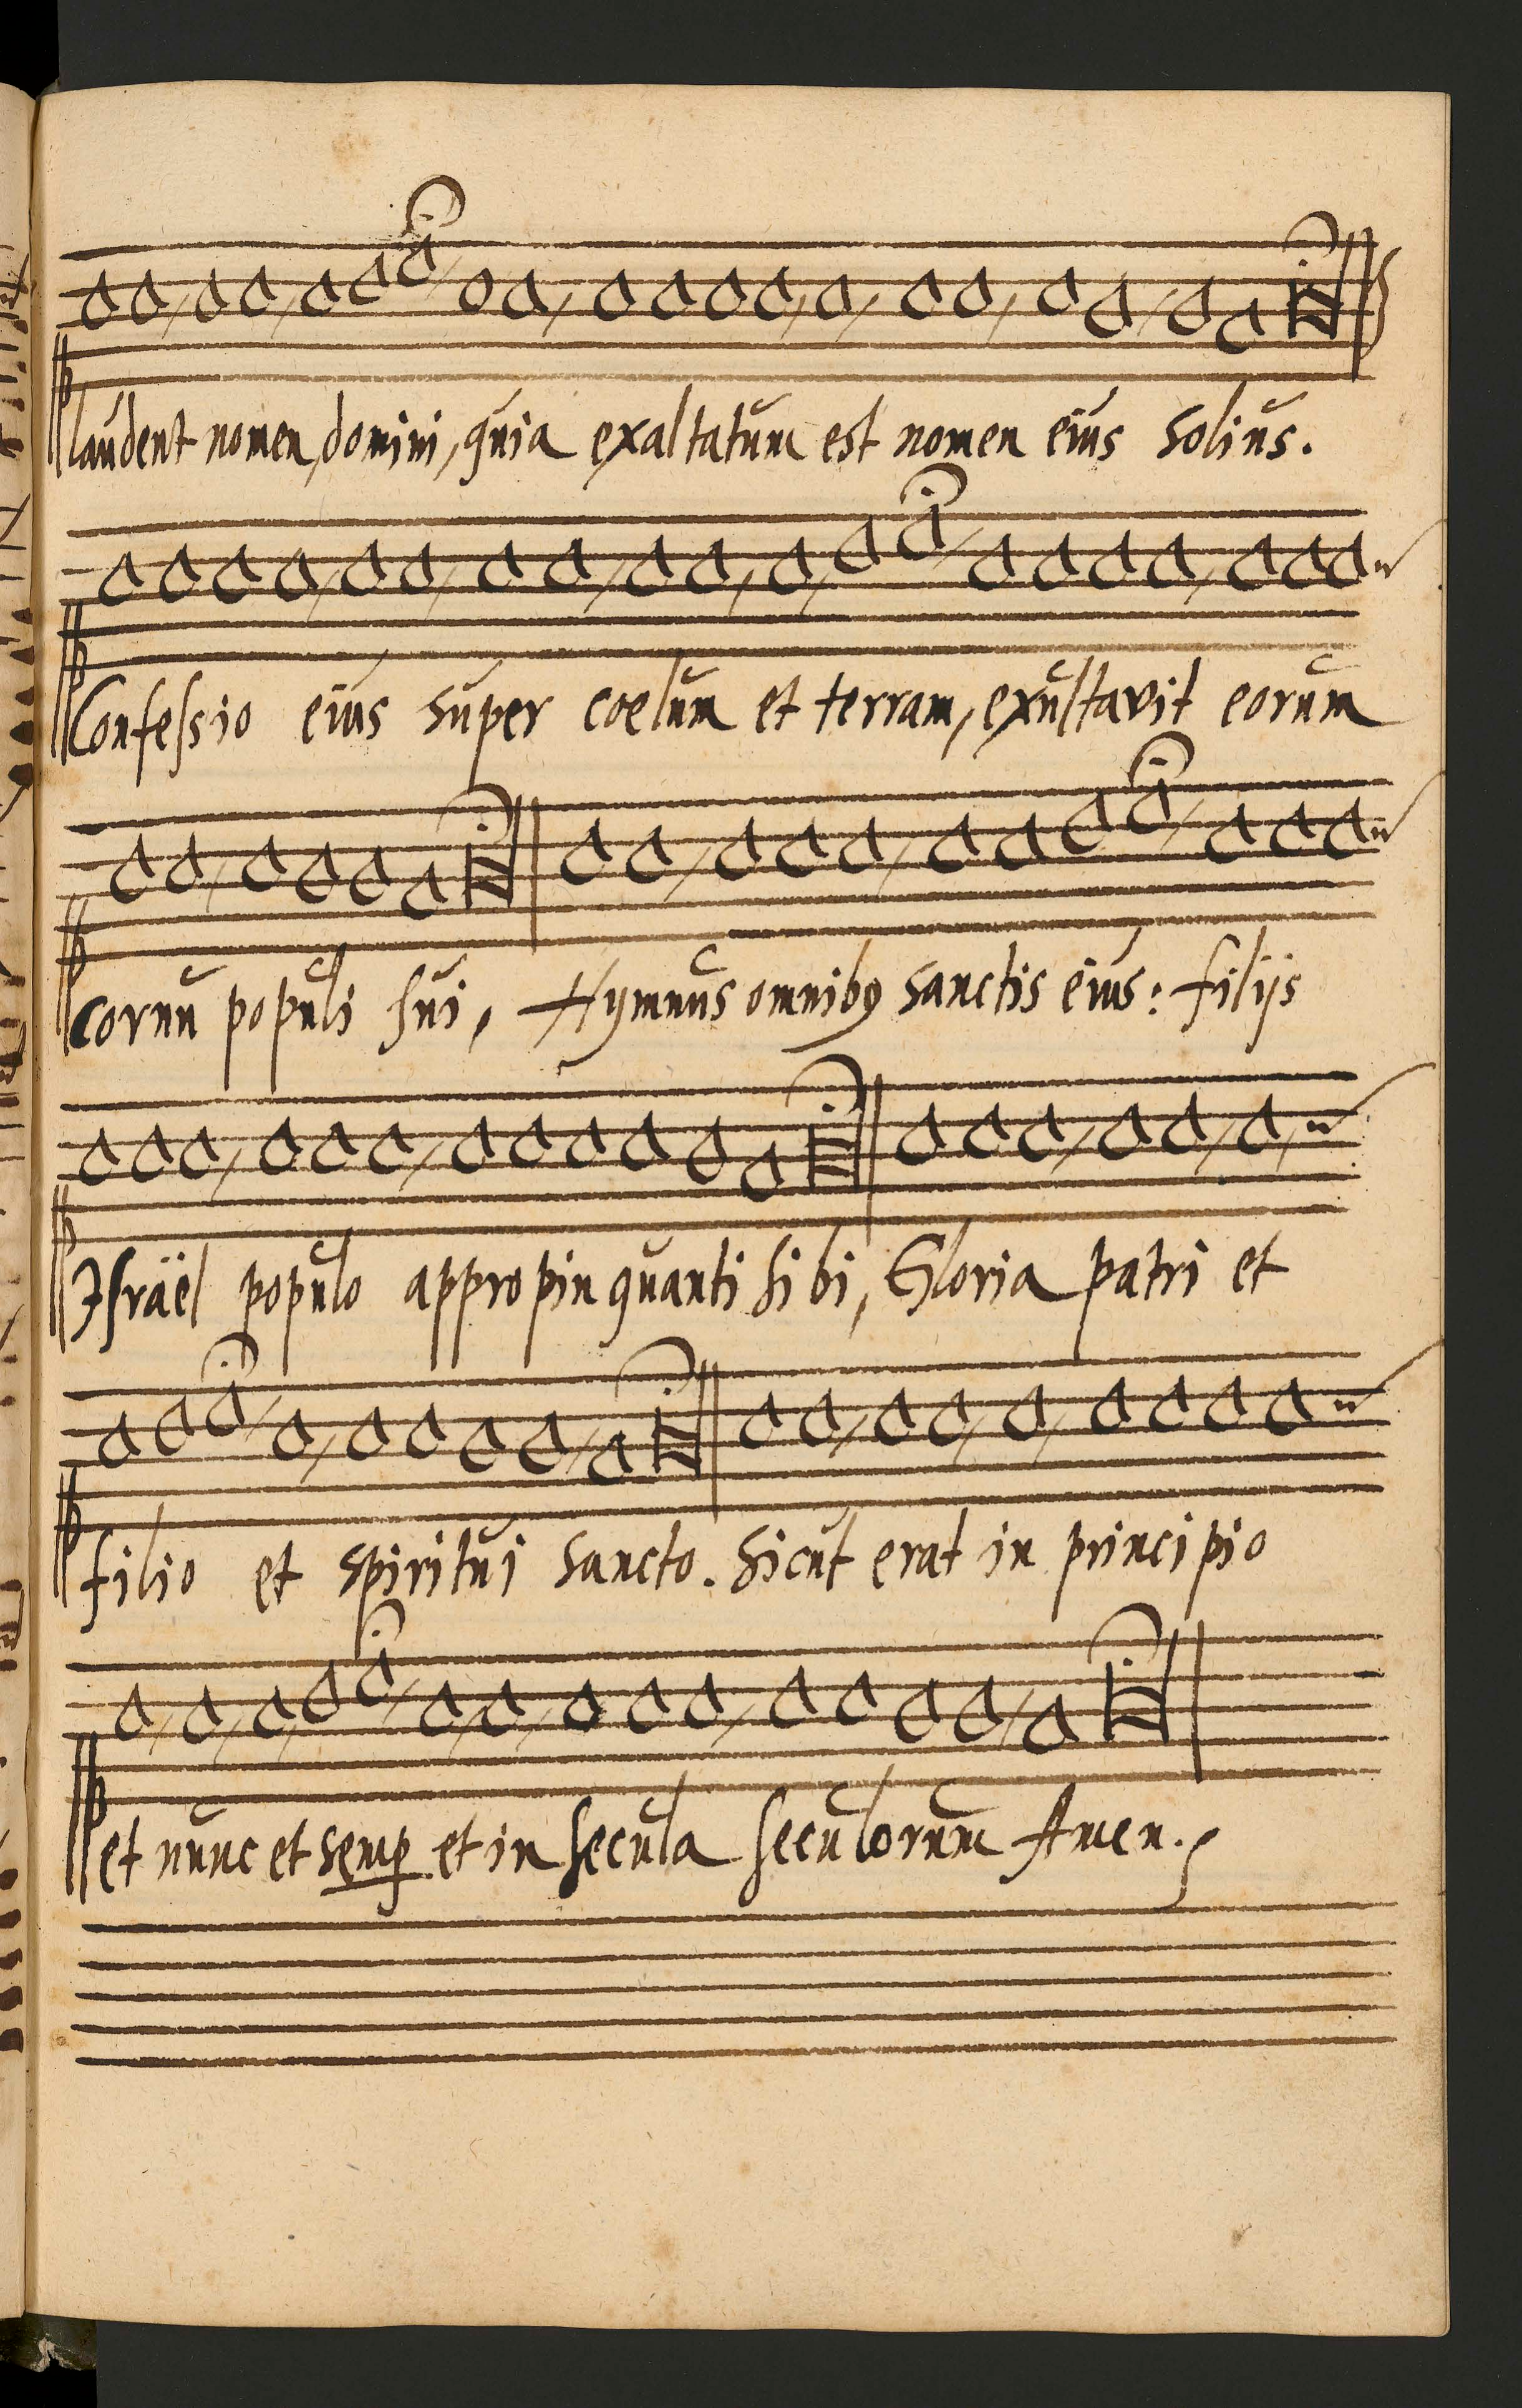 laudent nomen, domini, quia exaltatum est nomen eius solius.
Confessio eius super coelum et terram, exultavit eorum
cornu populi sui, Hymnus omnibꝰ sanctis eius: filijs
Israël populo appropinquanti sibi, Gloria patri et
filio et spiritui sancto. Sicut erat in principio
et nunc et semꝑ et in secula seculorum Amen.